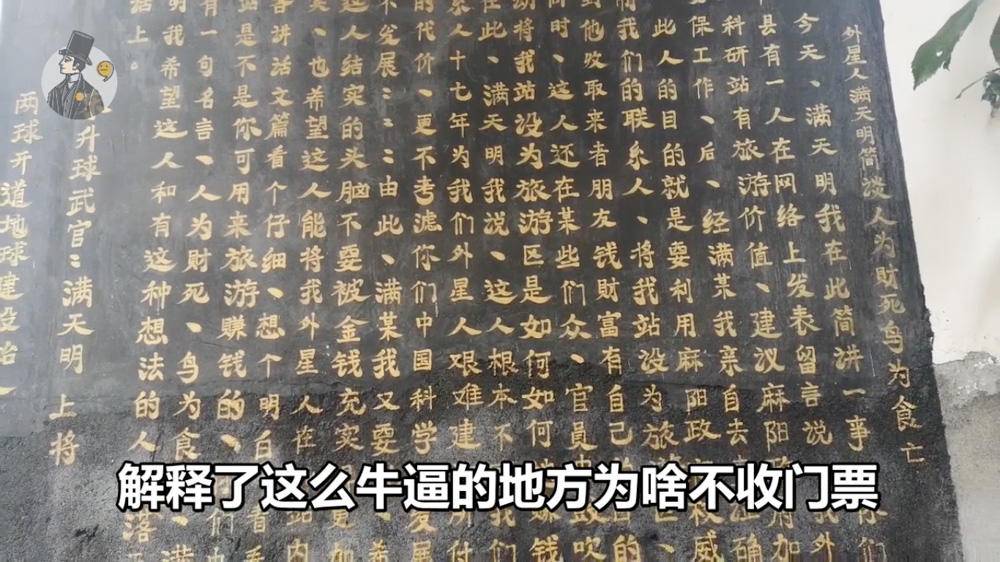 外星人满天明简谈人为财死鸟为食亡
今天、满天明我在此简讲一事
县有一人在网络上发表留言说我外
科研站有旅游价值、建议麻阳政府加
保工作、后、经满某我亲自去
此人的目的就是要利用麻阳政权威
我们的联系人、将我站没为旅
到他收取来者朋友钱财富有自己的
同时、这人还在某些们众、官员
动将我站没为旅游区是如何如何
在此、满天明我说、这人根本不我们
系人十七年为我们外星人艰难建所付
的代价、更不考滤你们中国科学发展
不发展::由此、满某我又要希
这人结实的头脑不要被金钱充实更加
实、也希望这人能将我外星人在站内
各讲话文篇看个仔细、想个明白
站是不是你可用来旅游赚钱的、
有一句名言、人为财死、鸟为食
明我希望这人和有这种想法的人
话上。
升球武官:满天明 上将
两球开道地球建设始人
解释了这么牛逼的地方为啥不收门票